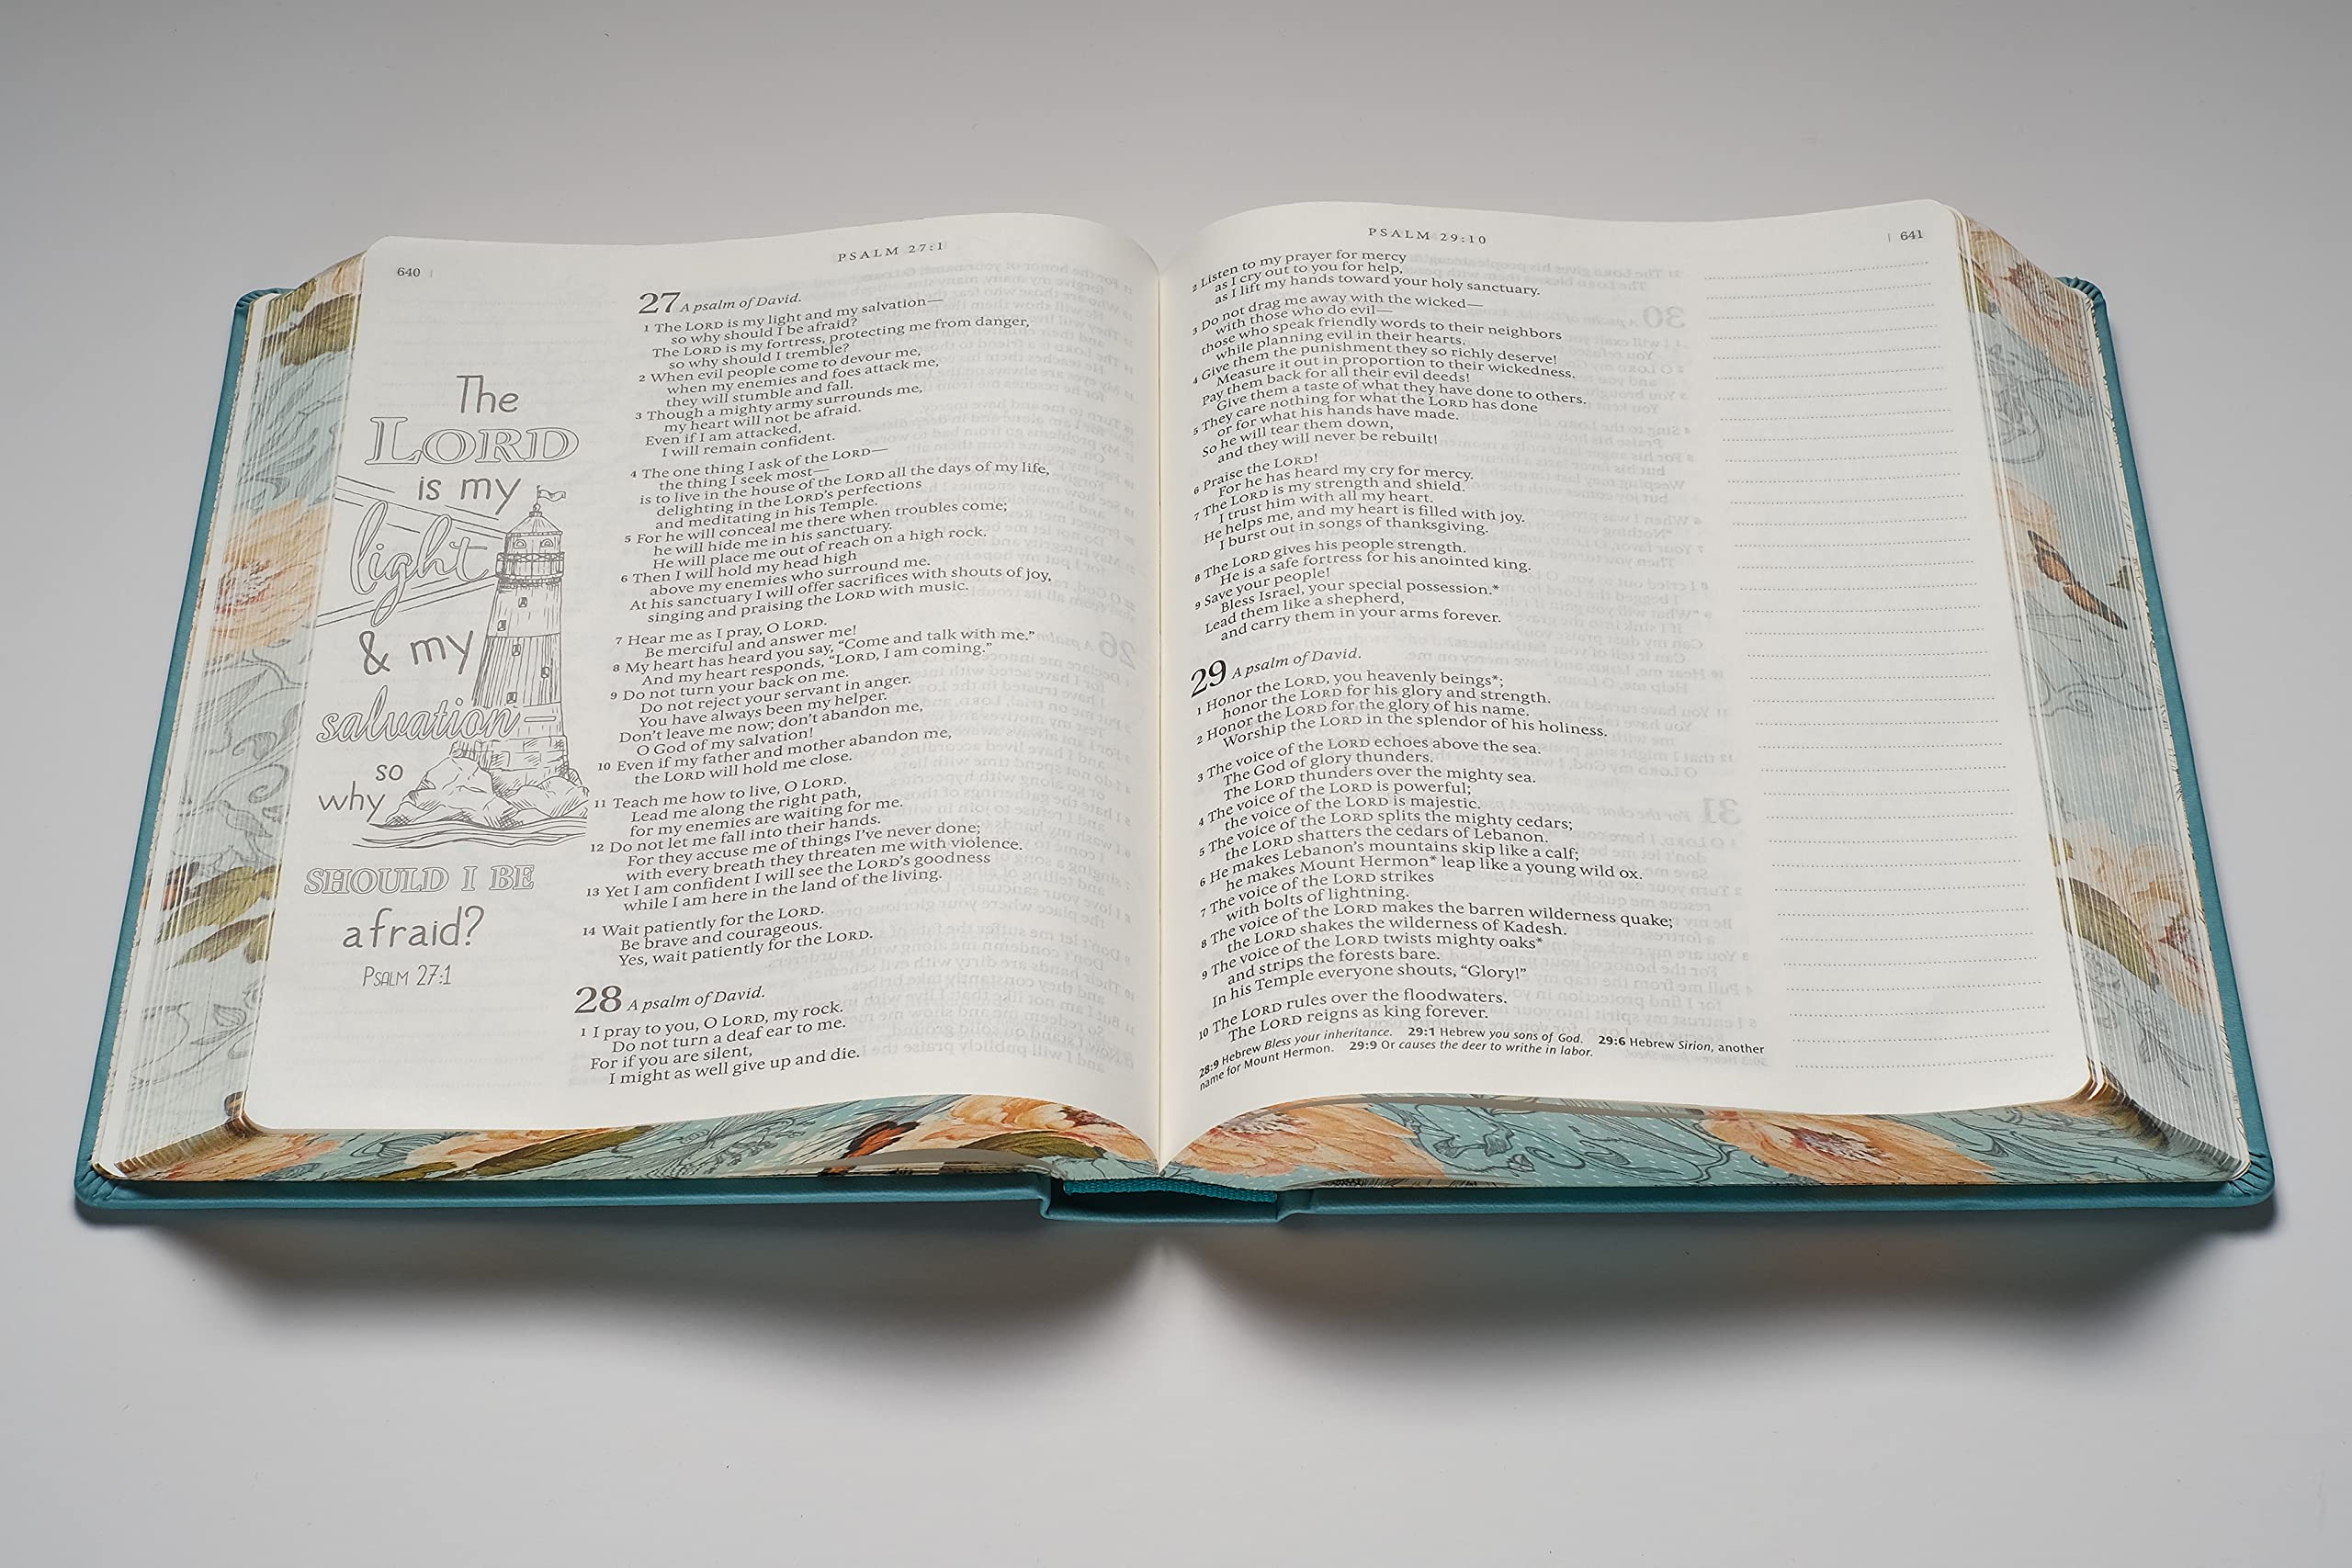 640
PSALM 27:1
The
LORD
is my
light
& my
salvation—
so
why
SHOULD I BE
afraid?
PSALM 27:1
27 A psalm of David.
1 The LORD is my light and my salvation—
so why should I be afraid?
The LORD is my fortress, protecting me from danger,
so why should I tremble?
2 When evil people come to devour me,
when my enemies and foes attack me,
they will stumble and fall.
3 Though a mighty army surrounds me,
my heart will not be afraid.
Even if I am attacked,
I will remain confident.
4 The one thing I ask of the LORD—
the thing I seek most—
is to live in the house of the LORD all the days of my life,
delighting in the LORD's perfections
and meditating in his Temple.
5 For he will conceal me there when troubles come;
he will hide me in his sanctuary.
He will place me out of reach on a high rock.
6 Then I will hold my head high
above my enemies who surround me.
At his sanctuary I will offer sacrifices with shouts of joy,
singing and praising the LORD with music.
7 Hear me as I pray, O LORD.
Be merciful and answer me!
8 My heart has heard you say, “Come and talk with me.”
And my heart responds, “LORD, I am coming.”
9 Do not turn your back on me.
Do not reject your servant in anger.
You have always been my helper.
Don't leave me now; don't abandon me,
O God of my salvation!
10 Even if my father and mother abandon me,
the LORD will hold me close.
11 Teach me how to live, O LORD.
Lead me along the right path,
for my enemies are waiting for me.
12 Do not let me fall into their hands.
For they accuse me of things I've never done;
with every breath they threaten me with violence.
13 Yet I am confident I will see the LORD's goodness
while I am here in the land of the living.
14 Wait patiently for the LORD.
Be brave and courageous.
Yes, wait patiently for the LORD.
28 A psalm of David.
1 I pray to you, O LORD, my rock.
Do not turn a deaf ear to me.
For if you are silent,
I might as well give up and die.
PSALM 29:10
641
2 Listen to my prayer for mercy
as I cry out to you for help,
as I lift my hands toward your holy sanctuary.
3 Do not drag me away with the wicked—
with those who do evil—
those who speak friendly words to their neighbors
while planning evil in their hearts.
4 Give them the punishment they so richly deserve!
Measure it out in proportion to their wickedness.
Pay them back for all their evil deeds!
Give them a taste of what they have done to others.
5 They care nothing for what the LORD has done
or for what his hands have made.
So he will tear them down,
and they will never be rebuilt!
6 Praise the LORD!
For he has heard my cry for mercy.
7 The LORD is my strength and shield.
I trust him with all my heart.
He helps me, and my heart is filled with joy.
I burst out in songs of thanksgiving.
8 The LORD gives his people strength.
He is a safe fortress for his anointed king.
9 Save your people!
Bless Israel, your special possession.*
Lead them like a shepherd,
and carry them in your arms forever.
29 A psalm of David.
1 Honor the LORD, you heavenly beings*;
honor the LORD for his glory and strength.
2 Honor the LORD for the glory of his name.
Worship the LORD in the splendor of his holiness.
3 The voice of the LORD echoes above the sea.
The God of glory thunders.
The LORD thunders over the mighty sea.
4 The voice of the LORD is powerful;
the voice of the LORD is majestic.
5 The voice of the LORD splits the mighty cedars;
the LORD shatters the cedars of Lebanon.
6 He makes Lebanon's mountains skip like a calf;
he makes Mount Hermon* leap like a young wild ox.
7 The voice of the LORD strikes
with bolts of lightning.
8 The voice of the LORD makes the barren wilderness quake;
the LORD shakes the wilderness of Kadesh.
9 The voice of the LORD twists mighty oaks*
and strips the forests bare.
In his Temple everyone shouts, “Glory!”
10 The LORD rules over the floodwaters.
The LORD reigns as king forever.
28:9 Hebrew Bless your inheritance. 29:1 Hebrew you sons of God. 29:6 Hebrew Sirion, another
name for Mount Hermon. 29:9 Or causes the deer to writhe in labor.